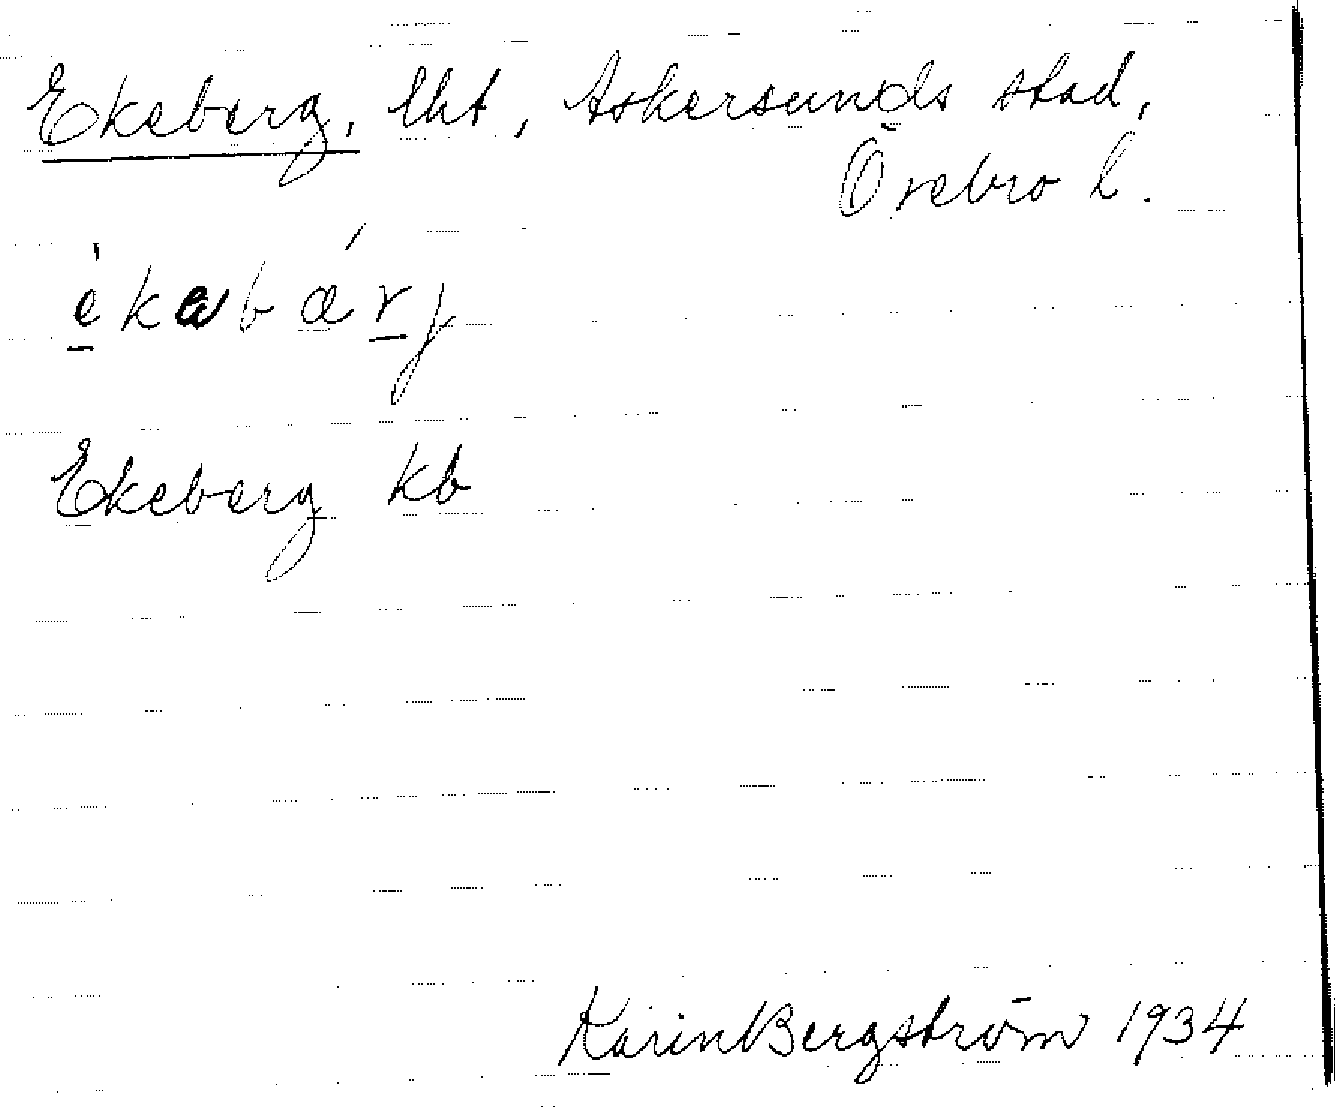 Ekeberg, lht, Askersunds stad,
Örebro l.
èkabǽrj
Ekeberg kb
Karin Bergström 1934